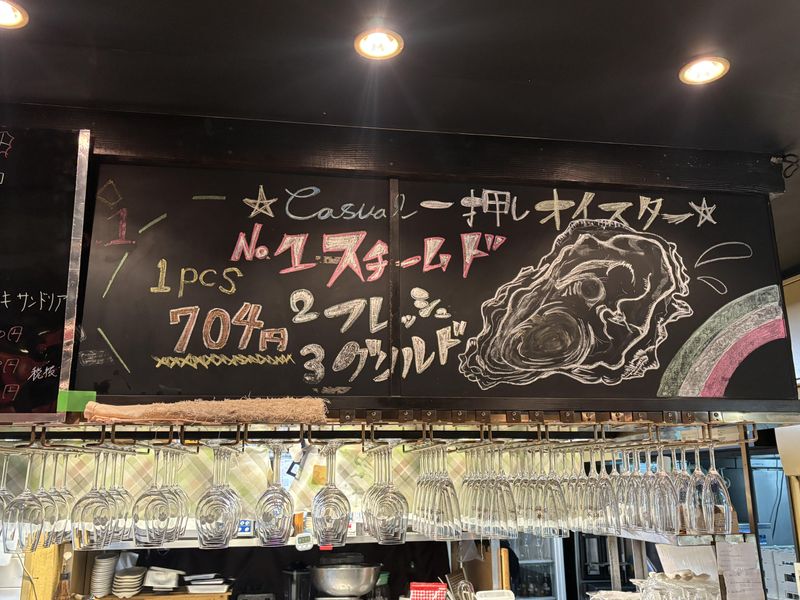 ☆Casual一押しオイスター☆
No.1 スチームド
1pcs
704円
2 フレッシュ
3 グリルド
1
キ サンドリア
0円
0円
税抜
円